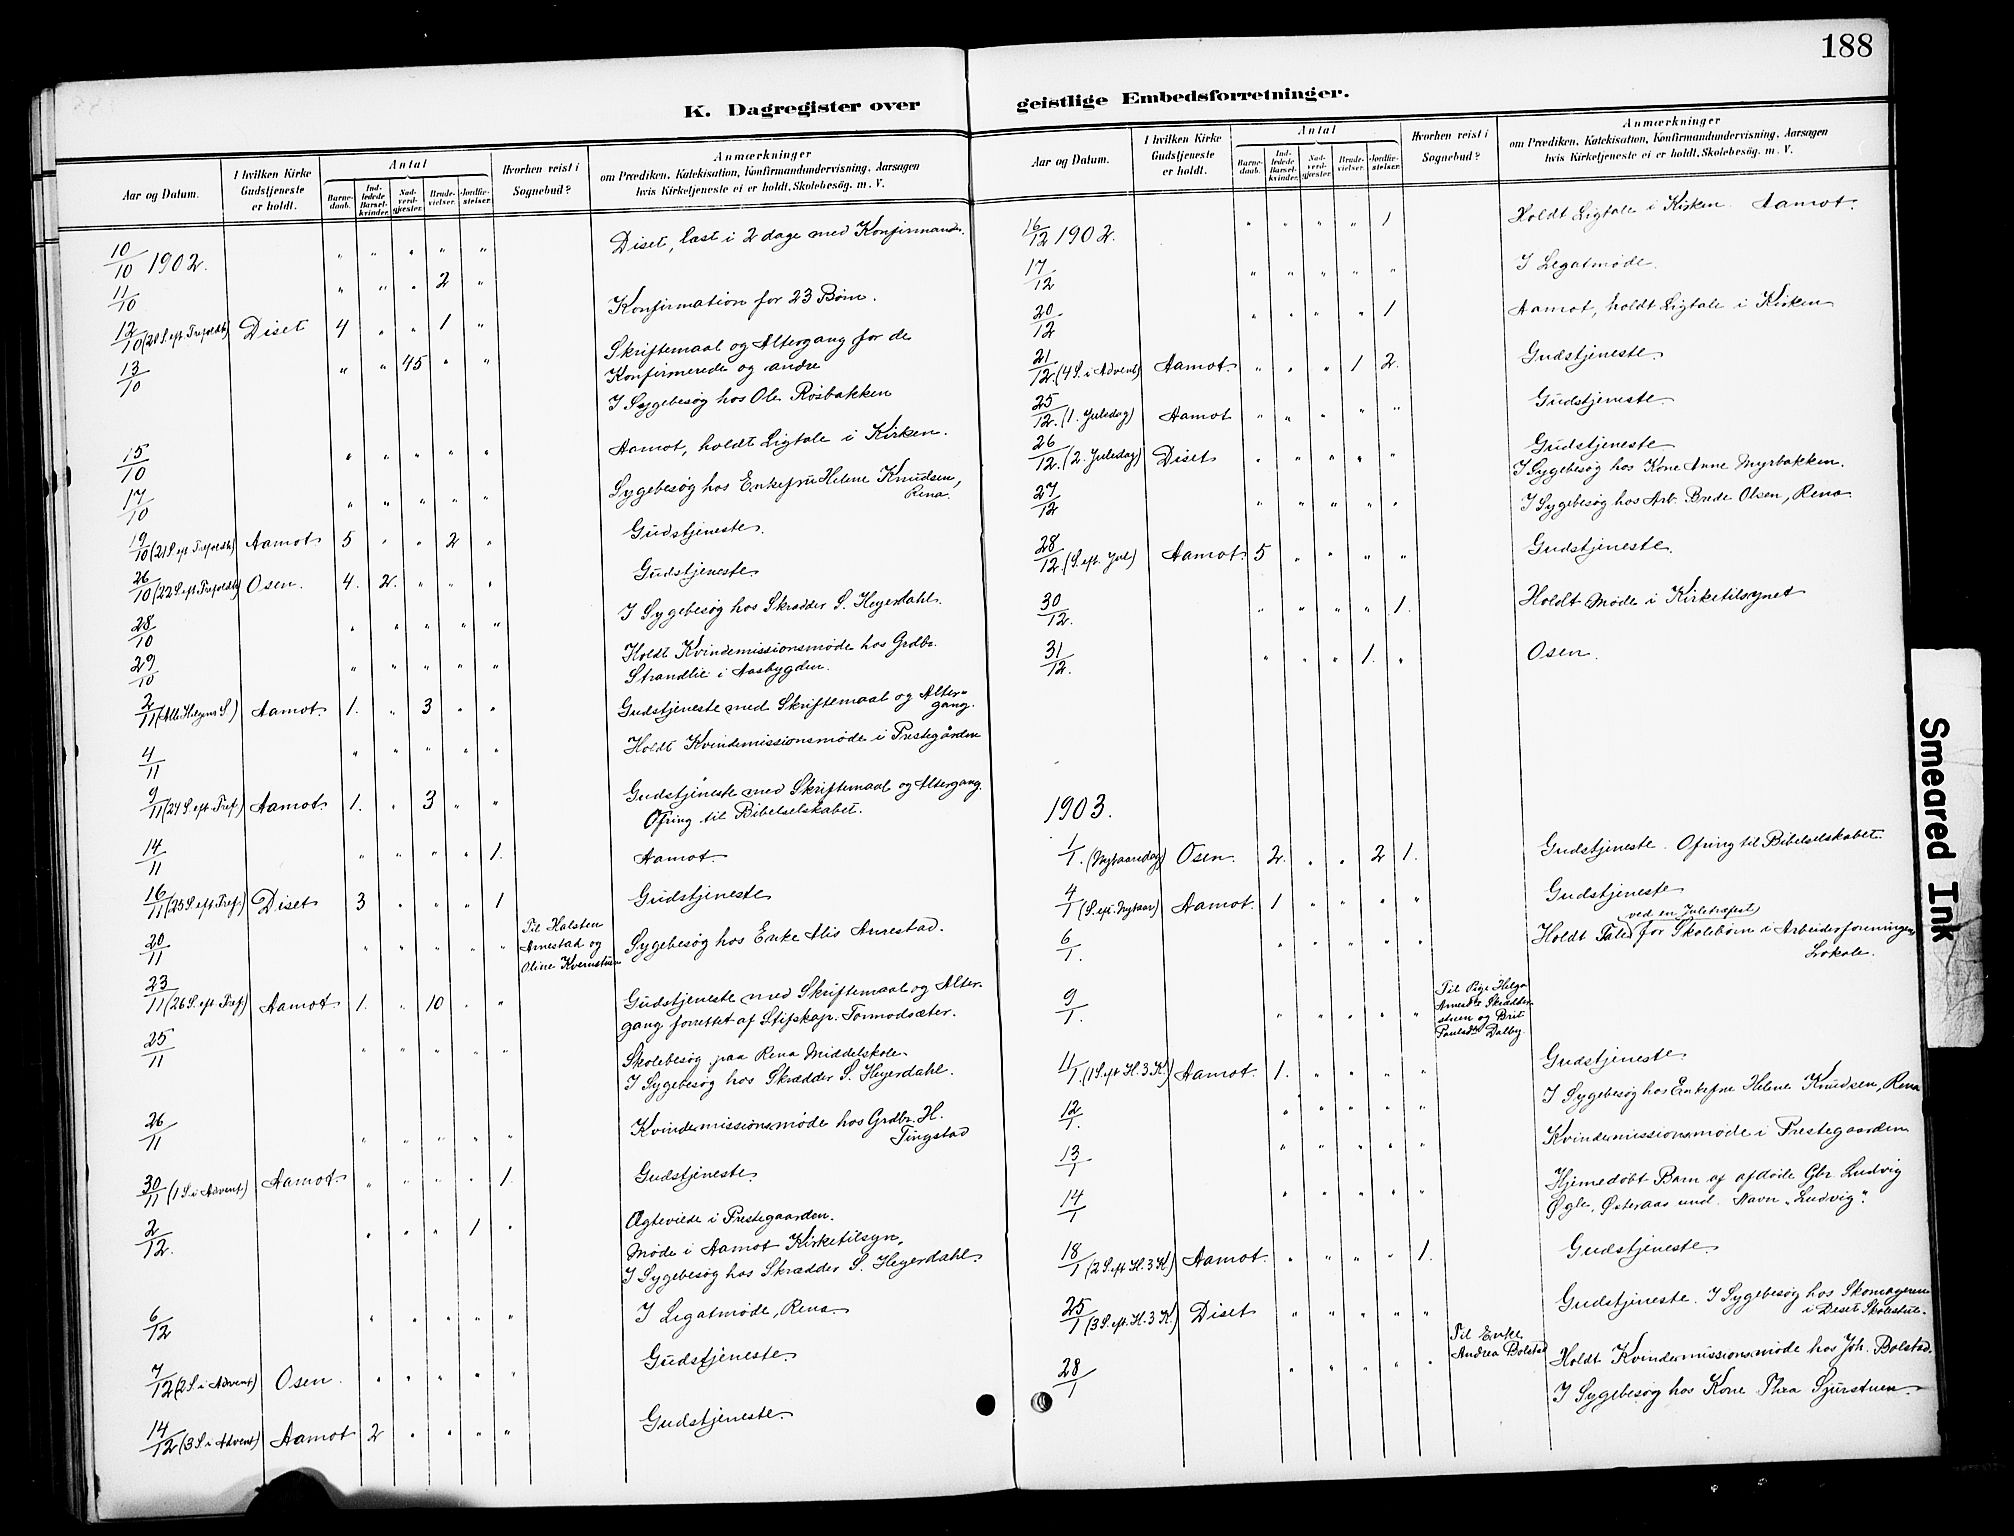 188
K. Dagregister over
Aar og Datum.
I hvilken Kirke Gudstjeneste er holdt.
Antal
Barne-daab.
Ind-ledede Barsel-kvinder.
Nad-verd-gjæster.
Brude-vielser.
Jordfæ-stelser.
Hvorhen reist i Sognebud?
Anmærkninger
om Prædiken, Katekisation, Konfirmandundervisning, Aarsagen
hvis Kirketjeneste ei er holdt, Skolebesög. m. V.
10/10 1902. " " " " " Diset, læst i 2 dage med Konfirmander.
11/10 " " " 2 "
12/10 (20 S. eft. Trefoldh) Diset 4 " " 1 " Konfirmation for 23 Børn.
13/10 " " 45 " " Skriftemaal og Altergang for de
Konfirmerede og andre
I Sygebesøg hos Ole Røsbakken
15/10 " " " " " Aamot, holdt Ligtale i Kirken.
17/10 " " " " " Sygebesøg hos Enkefru Helene Knudsen,
Rena.
19/10 (21 S. eft Trefoldh) Aamot 5 " " 2 " Gudstjeneste.
26/10 (22 S. eft Trefoldh) Osen. 4. 2. " " " Gudstjeneste.
28/10 " " " " " I Sygebesøg hos Skrædder S. Heyerdahl.
29/10 " " " " " Holdt Kvindemissionsmøde hos Grdbr.
Strandlie i Aasbygden.
2/11 (Alle Helgens S) Aamot. 1. " 3 " " Gudstjeneste med Skriftemaal og Alter-
gang.
4/11 " " " " " Holdt Kvindemissionsmøde i Prestegården
9/11 (24 S. eft Tref.) Aamot. 1. " 3 " " Gudstjeneste med Skriftemaal og Altergang.
Ofring til Bibelselskabet.
14/11 " " " " 1. Aamot.
16/11 (25 S. eft Tref.) Diset 3 " " " 1 Gudstjeneste
20/11 " " " " " Til Halsten
Arnestad og
Oline Kvernstuen
Sygebesøg hos Enke Alis Aurestad.
23/11 (26 S. eft Tref) Aamot 1. " 10 " " Gudstjeneste med Skriftemaal og Alter-
gang forrettet af Stifskap. Tormodsæter.
25/11 " " " " " Skolebesøg paa Rena Middelskole.
I Sygebesøg hos Skrædder S. Heyerdahl.
26/11 " " " " " Kvindemissionsmøde hos Grdbr. H.
Tingstad
30/11 (1 S. i Advent) Aamot. " " " " 1. Gudstjeneste.
2/12. " " " 1 " Ægteviede i Prestegaarden.
Møde i Aamot Kirketilsyn,
I Sygebesøg hos Skrædder S. Heyerdahl.
6/12 " " " " " I Legatmøde, Rena.
7/12 (2 S. i Advent) Osen. " " " " " Gudstjeneste.
14/12 (3 S. i Advent) Aamot 2 " " " " Gudstjeneste.
geistlige Embedsforretninger.
Aar og Datum.
I hvilken Kirke Gudstjeneste er holdt.
Antal
Barne-daab.
Ind-ledede Barsel-kvinder.
Nad-verd-gjæster.
Brude-vielser.
Jordfæ-stelser.
Hvorhen reist i Sognebud?
Anmærkninger
om Prædiken, Katekisation, Konfirmandundervisning, Aarsagen
hvis Kirketjeneste ei er holdt, Skolebesög. m. V.
16/12 1902. " " " " 1 Holdt Ligtale i Kirken. Aamot.
17/12 " " " " " I Legatmøde.
20/12 " " " " 1 Aamot, holdt Ligtale i Kirken
21/12. (4 S. i Advent) Aamot. " " " 1 2. Gudstjeneste.
25/12. (1. Juledag) Aamot " " " " " Gudstjeneste.
26/12. (2. Juledag) Diset " " " " " Gudstjeneste
I Sygebesøg hos Kone Anne Myrbakken.
27/12 " " " " " I Sygebesøg hos Arb. Brede Olsen, Rena
28/12. (S. eft. Jul) Aamot. 5 " " " " Gudstjeneste.
30/12. " " " " 1. Holdt Møde i Kirketilsynet
31/12. " " " 1. " Osen.
1903.
1/1. (Nytaarsdag) Osen. 2. " " 2 1. Gudstjeneste. Ofring til Bibelselskabet.
4/1 (S. eft. Nytaar) Aamot. 1 " " " " Gudstjeneste
ved en Juletræfest
6/1. " " " " " Holdt Tale for Skolebørn i Arbeiderforeningens
Lokale.
9/1. " " " " " Til Pige Helga
Arnesdtr Skrædder-
stuen og Brit
Paulsdtr Dalby.
11/1. (1 S. eft H. 3. K.) Aamot. 1. " " " " Gudstjeneste.
12/1. " " " " " I Sygebesøg hos Enkefru Helene Knudsen, Rena
13/1 " " " " " Kvindemissionsmøde i Prestegaarden
14/1 " " " " " Hjemedøbt Barn af afdøde Gbr. Ludvig
Øgle, Østeraas und. Navn „Ludvig".
18/1 (2 S. eft H. 3 K) Aamot. " " " " 1. Gudstjeneste.
25/1 (3 S. eft. H. 3 K.) Diset " " " " " Gudstjeneste. I Sygebesøg hos Skomageren
i Diset Skolestue.
28/1 " " " " " Til Enke
Andrea Bolstad
Holdt Kvindemissionsmøde hos Joh. Bolstad.
I Sygebesøg hos Kone Thea Sjurstuen.
Smeared Ink